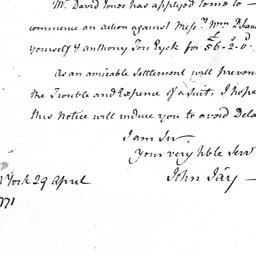 Mr. David Jones has applyed to me to —
commence an action against Messrs. Wm
yourself & Anthony Ten Eyck for £56-2-0
as an amicable Settlement will preven
the Trouble and Expence of a suit. I hope
this Notice will induce you to avoid Dela
I am Sir
Your very hble Serv
John Jay —
York 29 April
771